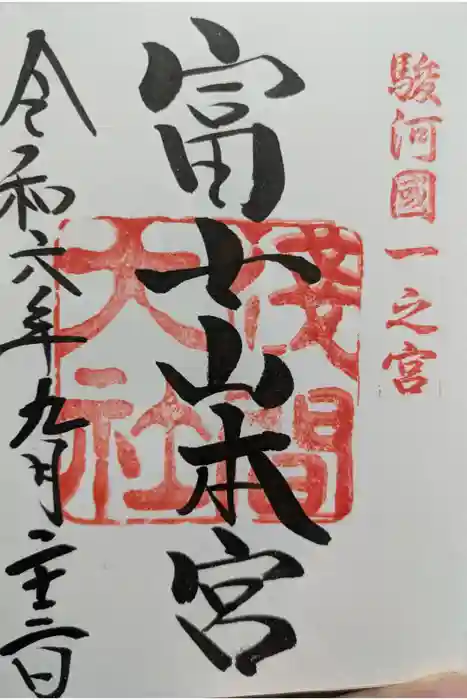 駿河國一之宮
富士山本宮
淺間大社
令和六年九月二十三日